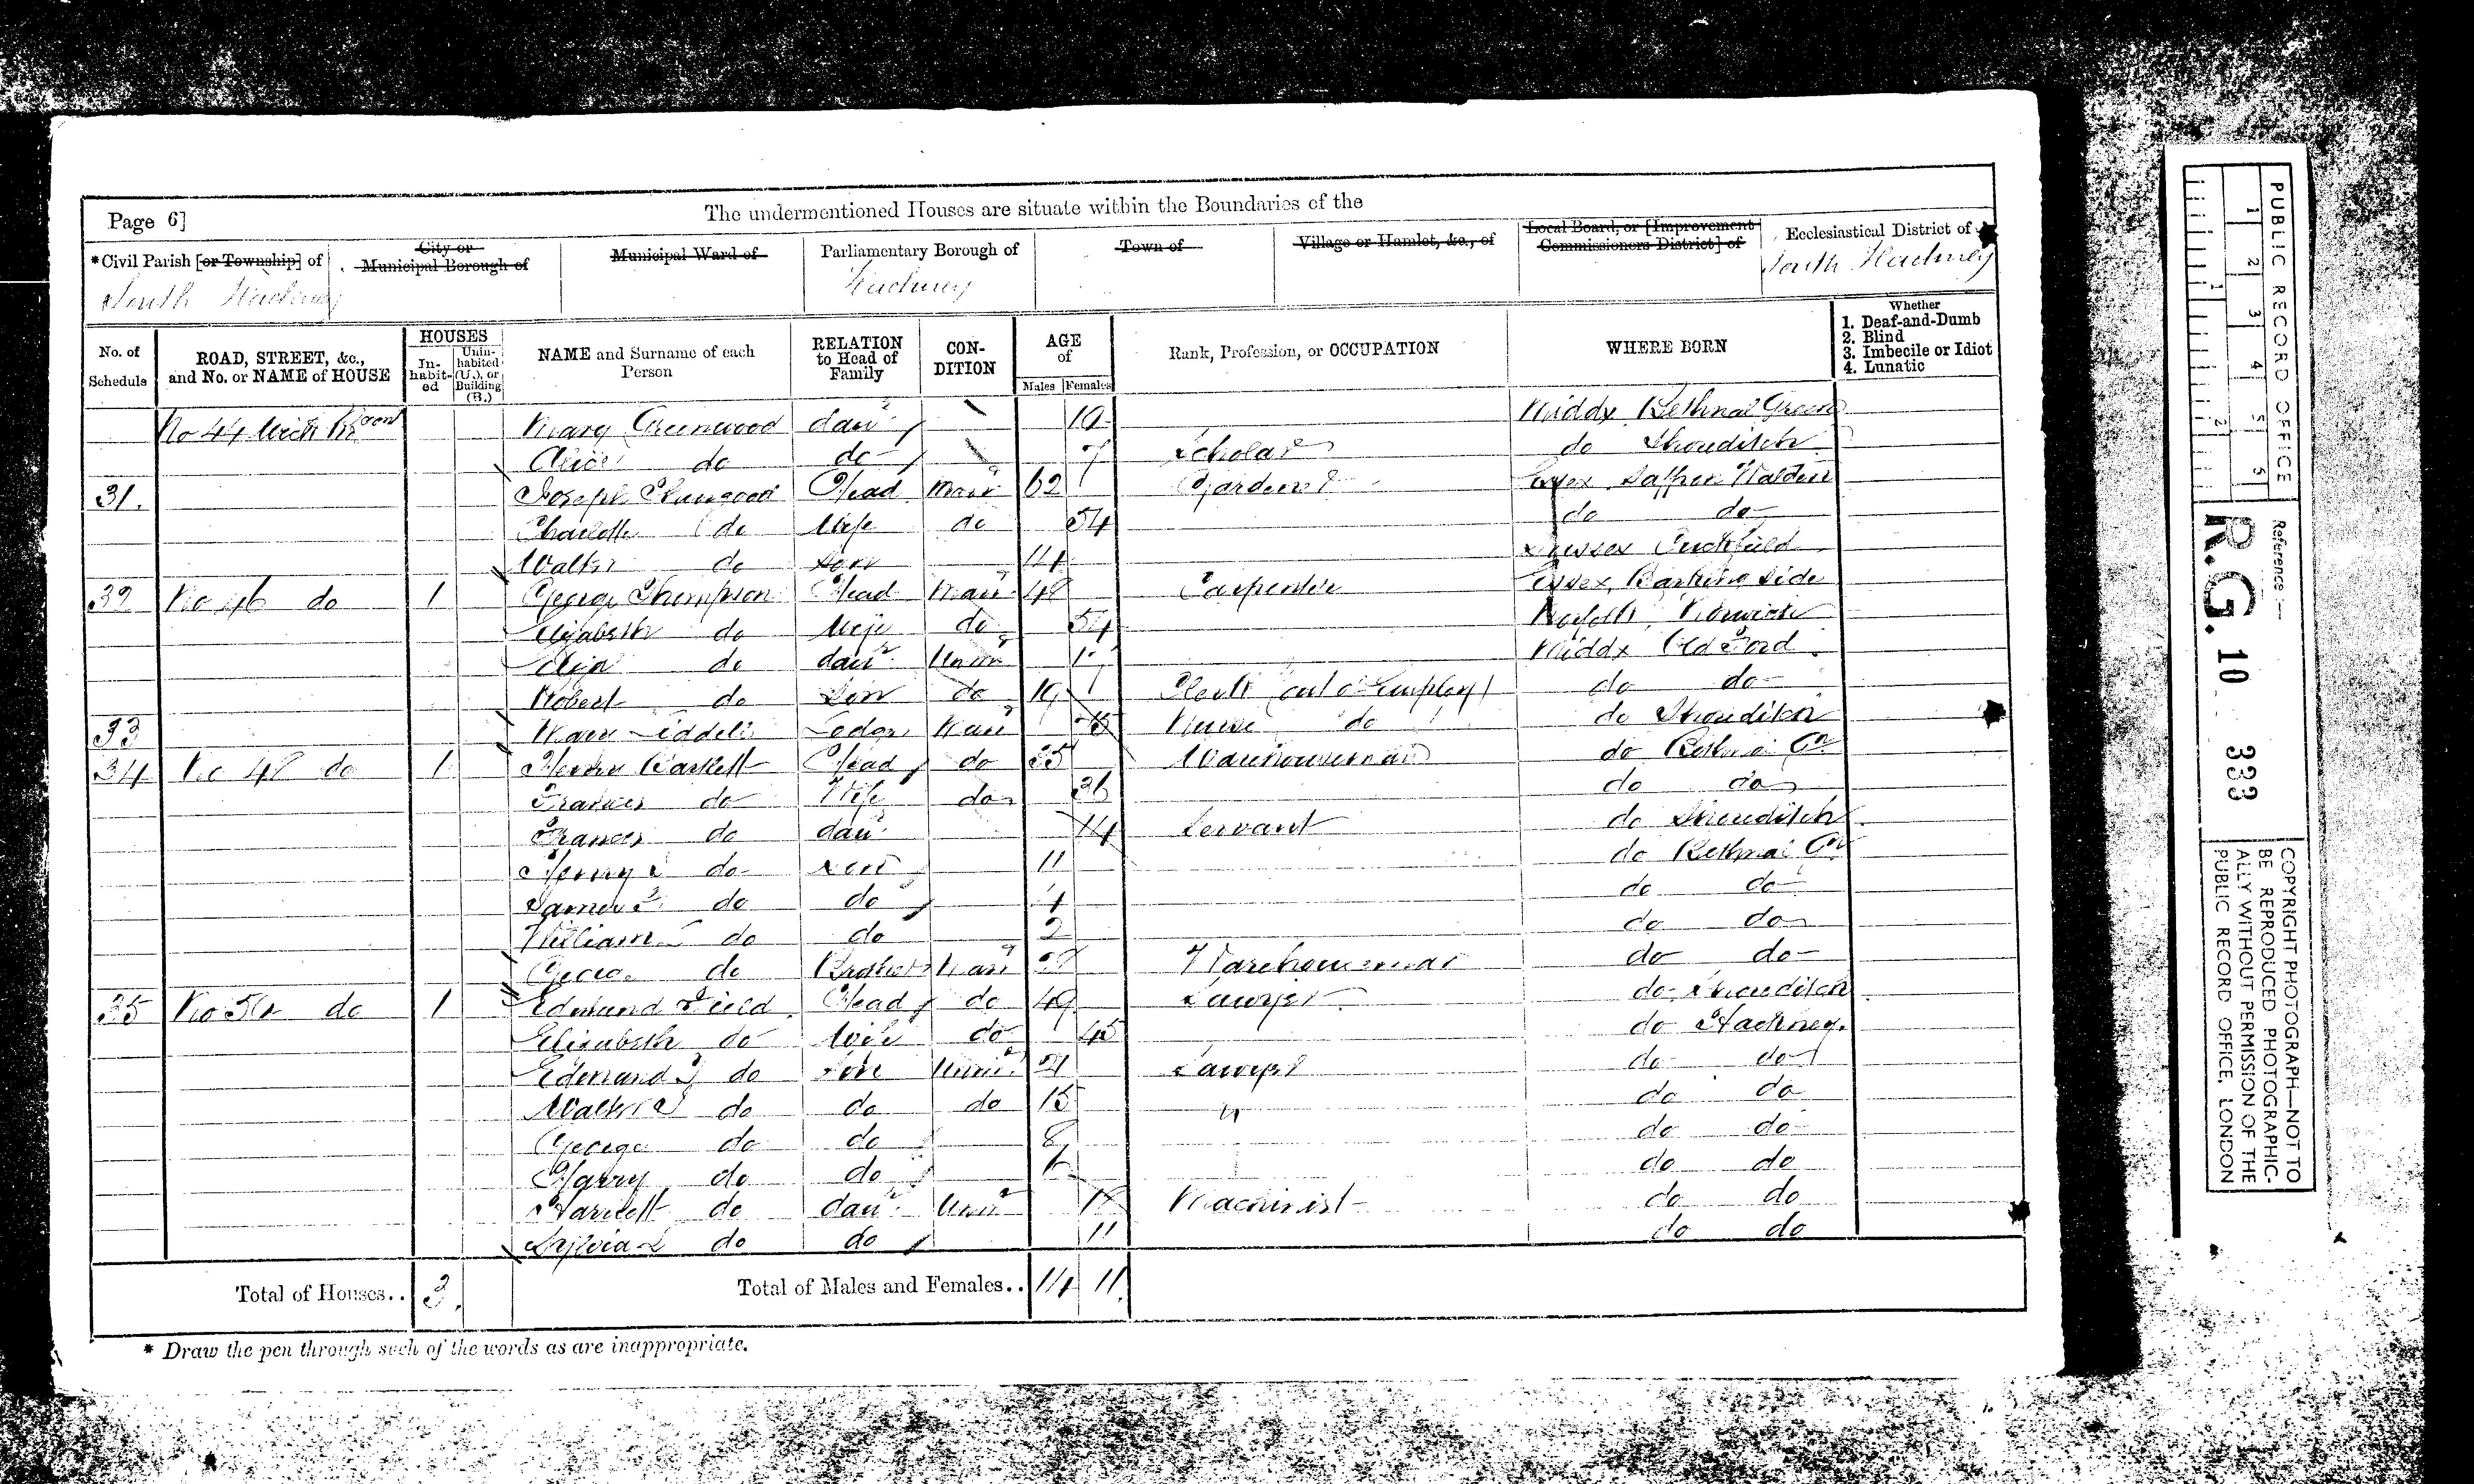 The undermentioned Houses are situate within the Boundaries of the
Page 6]
*Civil Parish [or Township] of
City or Municipal Borough of
Municipal Ward of
Parliamentary Borough of
Town of
Village or Hamlet, &c., of
Local Board, or [Improvement Commissioners District] of
Ecclesiastical District of
South Hackney
Hackney
South Hackney
No. of Schedule
ROAD, STREET, &c., and No. or NAME of HOUSE
HOUSES
In-habit-ed
Unin-habited (U.), or Building (B.)
NAME and Surname of each Person
RELATION to Head of Family
CON-DITION
AGE of
Males Females
Rank, Profession, or OCCUPATION
WHERE BORN
Whether
1. Deaf-and-Dumb
2. Blind
3. Imbecile or Idiot
4. Lunatic
No 44 Mary Greenwood daur Middx Bethnal Green
Alice do do 7 Scholar do Shoreditch
31. Joseph Head Marr 62 Gardener Essex Saffron Walden
Charlotte do Wife do 54 do do
Walter do Son 14 Sussex Cuckfield
32 No 46 do 1 George Thompson Head Marr 48 Carpenter Essex, Barking side
Elizabeth do Wife do 54 Norfolk Norwich
do daur Unmr 17 Middx Old Ford
Robert do Son do 19 out o Employ do do
33 Mary Marr Nurse do do Shoreditch
34 No 48 do 1 Head do 35 Warehouseman do Bethnal Gn
Frances do Wife do 36 do do
Frances do daur 14 Servant do Shoreditch
Henry do Son 11 do Bethnal Gn
James do do 4 do do
William do do 2 do do
George do Brother Marr Warehouseman do do
35 No do 1 Edmund Field Head do 49 Sawyer do Shoreditch
Elizabeth do Wife do 45 do Hackney
Edmund J do Son Unmr 21 Sawyer do do
Walter do do do 15 do do
George do do 8 do do
Harry do do do do
Harriett do daur Unmr Machinist do do
Sylvia do do 11 do do
Total of Houses.. 3. Total of Males and Females.. 14 11
* Draw the pen through such of the words as are inappropriate.
PUBLIC RECORD OFFICE
1 2 3 4 5
1 2
Reference:—
R.G. 10 333
COPYRIGHT PHOTOGRAPH—NOT TO
BE REPRODUCED PHOTOGRAPHIC-
ALLY WITHOUT PERMISSION OF THE
PUBLIC RECORD OFFICE, LONDON